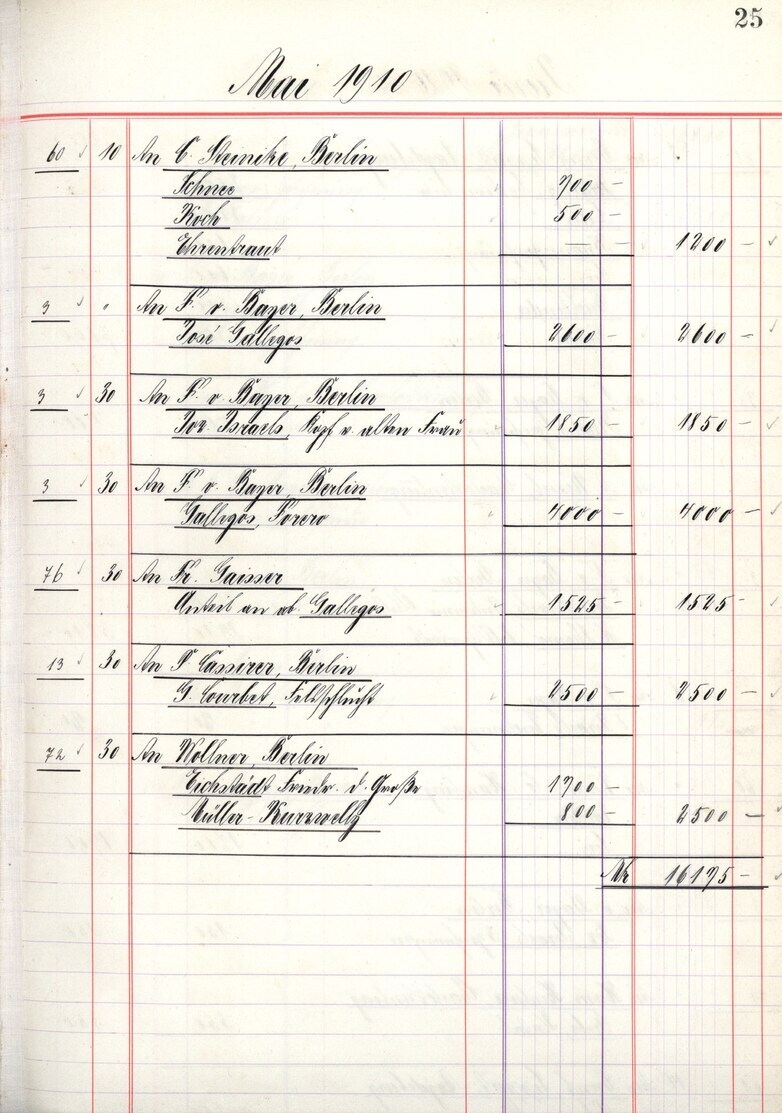 25
Mai 1910
60 10 An C. Steinike, Berlin
Schnee 700 –
Koch 500 –
Ehrentraut — – 1200 –
3 " An F. v. Bayer, Berlin
José Gallegos 2600 – 2600 –
3 30 An F. v. Bayer, Berlin
Jos. Israels, Kopf v. alten Frau 1850 – 1850 –
3 30 An F. v. Bayer, Berlin
Gallegos, Torero 4000 – 4000 –
76 30 An Fr. Gaisser
Anteil an ob. Gallegos 1525 – 1525 –
13 30 An P. Cassirer, Berlin
G. Courbet, Felsschlucht 2500 – 2500 –
72 30 An Wollner, Berlin
Eichstädt Friedr. d. Große 1700 –
Müller-Kurzwelly 800 – 2500 –
Mk 16175 –